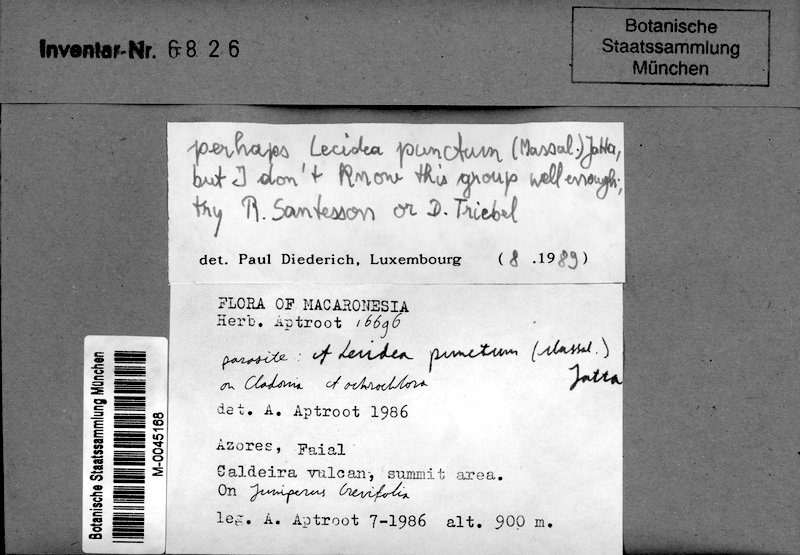 Inventar-Nr. 6826
Botanische
Staatssammlung
München
perhaps Lecidea punctum (Massal.) Jatta,
but I don't know this group well enough;
try R. Santesson or D. Triebel
det. Paul Diederich, Luxembourg (8 .1989)
FLORA OF MACARONESIA
Herb. Aptroot 16696
parasite: cf Lecidea punctum (Massal.)
Jatta
on Cladonia cf ochrochlora
det. A. Aptroot 1986
Azores, Faial
Caldeira vulcan, summit area.
On Juniperus brevifolia
leg. A. Aptroot 7-1986 alt. 900 m.
Botanische Staatssammlung München
M-0045168